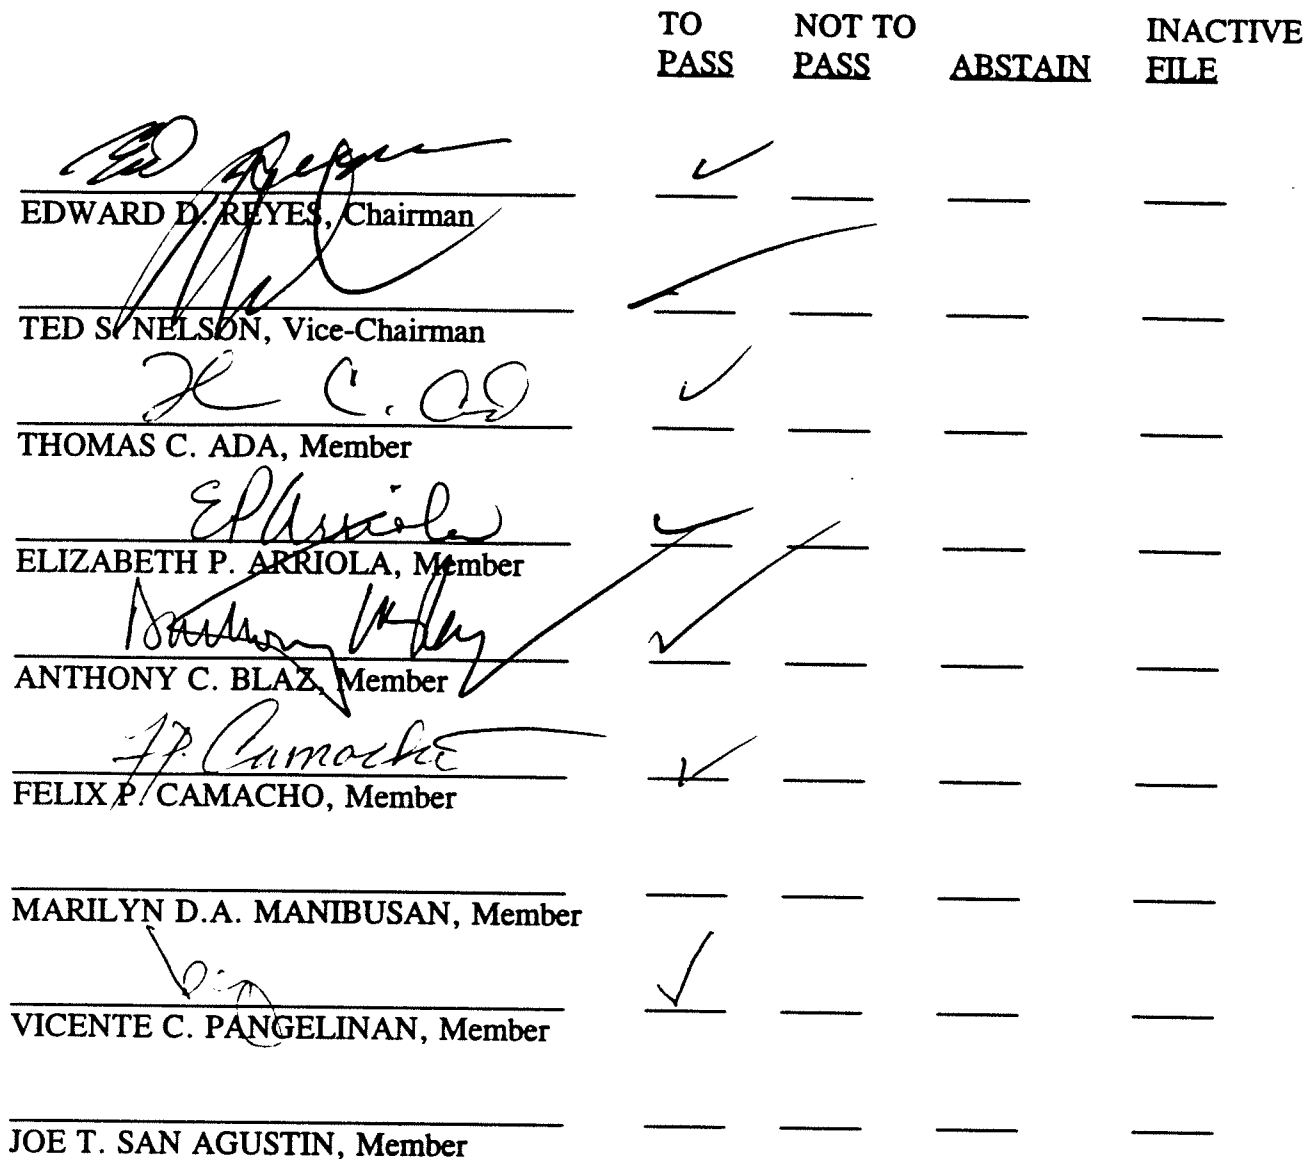 TO PASS NOT TO PASS ABSTAIN INACTIVE FILE
Ed Reyes ✓
EDWARD D. REYES, Chairman
TED S. NELSON, Vice-Chairman
✓
THOMAS C. ADA, Member
EP Arriola ✓
ELIZABETH P. ARRIOLA, Member
Anthony ✓
ANTHONY C. BLAZ, Member
F.P. Camacho ✓
FELIX P. CAMACHO, Member
MARILYN D.A. MANIBUSAN, Member
✓
VICENTE C. PANGELINAN, Member
JOE T. SAN AGUSTIN, Member